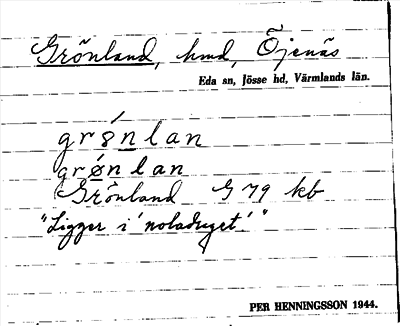 Grönland, hmd, Öjenäs
Eda sn, Jösse hd, Värmlands län.
grǿnlan
grǿnlan
Grönland G 79 kb
"Ligger i 'noladuget'"
PER HENNINGSSON 1944.